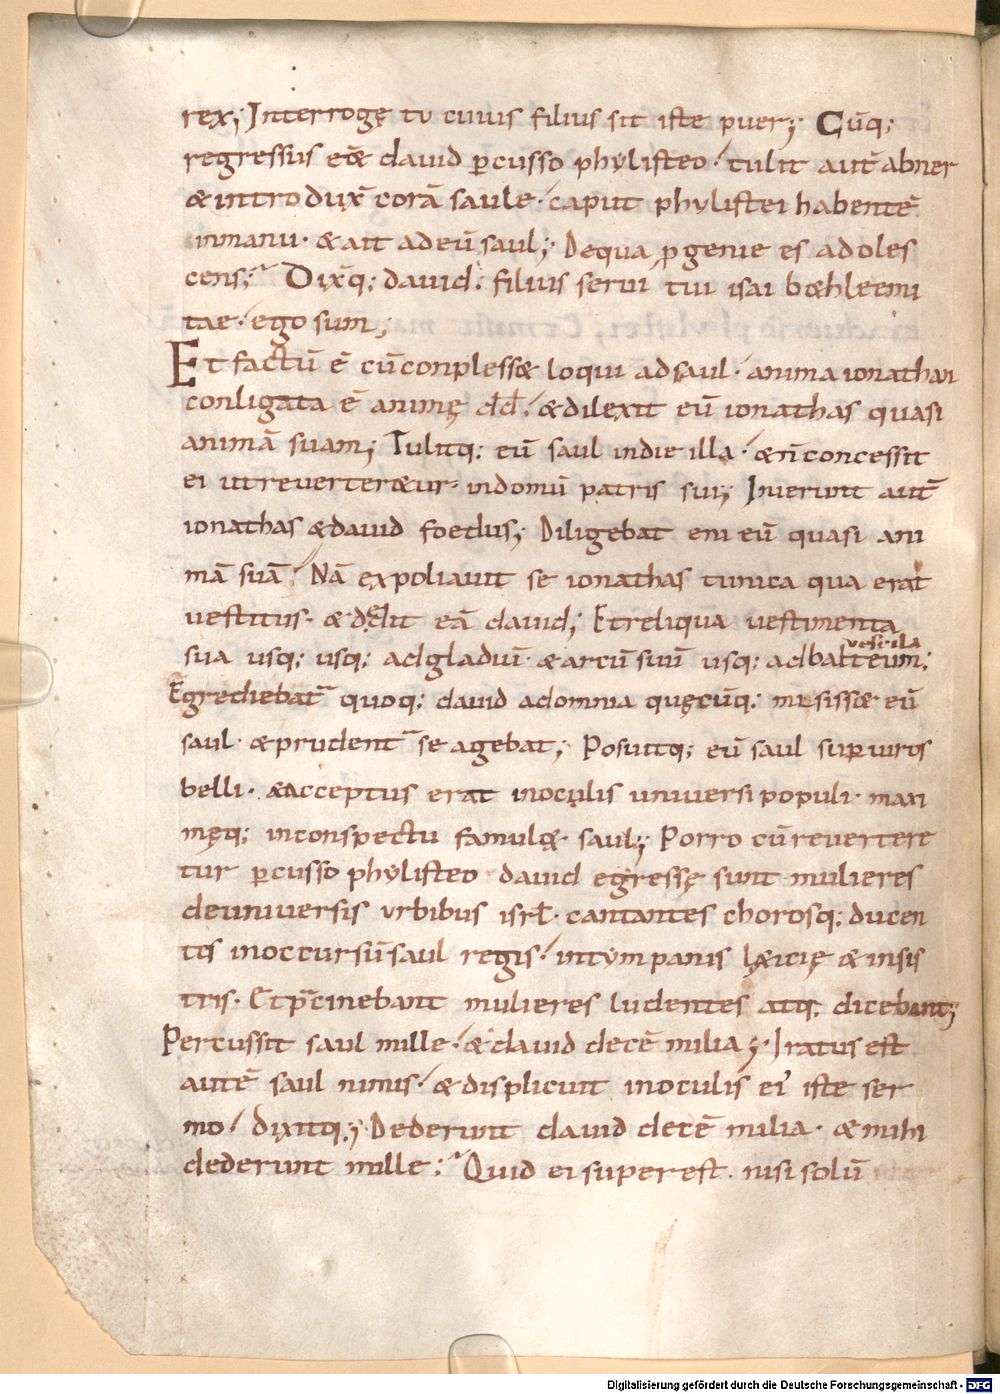 rex; Interrogę tu cuius filius sit iste puer; Cūq;
regressus eēt dauid ꝑcusso phylisteo· tulit aut̄ abner
& introdux̄ corā saule· caput phylistei habentē
inmanu· & ait adeū saul; Dequa ꝓgenie es adoles
cens; Dix̄q; dauid· filius serui tui isai b&hleemi
tae· ego sum;
Et factū ē cūconpless& loqui adsaul· anima ionathan
conligata ē animę dd̄· & dilexit eū ionathas quasi
animā suam; Tulitq; eū saul indie illa· & n̄ concessit
ei utreverter&ur· indomū patris sui; Inierunt aut̄
ionathas & dauid foedus; Diligebat eni eū quasi ani
mā suā; Nā expoliauit se ionathas tunica qua erat
uestitus· & dedit eā dauid; Etreliqua uestimenta
sua usq; usq; adgladiū· & arcū suū usq; adbalteum;
Egrediebat᷒ quoq; dauid adomnia quęcūq; misiss& eū
saul· & prudent᷒ se agebat; Posuitq; eū saul suꝑ uiros
belli· & acceptus erat inoculis uniuersi populi· maxi
męq; inconspectu famulorum saul; Porro cū revertere
tur ꝑcusso phylisteo dauid egressę sunt mulieres
deuniuersis urbibus isrl̄· cantantes chorosq; ducen
tes inoccursū saul regis· intympanis l&icię & insis
tris· Et p̄cinebant mulieres ludentes atq; dicebant;
Percussit saul mille· & dauid decē milia; Iratus est
autē saul nimis· & displicuit inoculis ei᷒ iste ser
mo· dixitq; Dederunt dauid decē milia· & mihi
dederunt mille; Quid ei superest· nisi solū
Digitalisierung gefördert durch die Deutsche Forschungsgemeinschaft - DFG